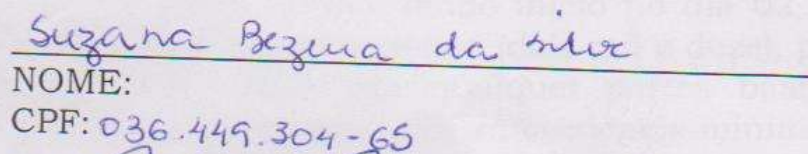 Suzana Bezerra da Silva
NOME:
CPF: 036.449.304-65